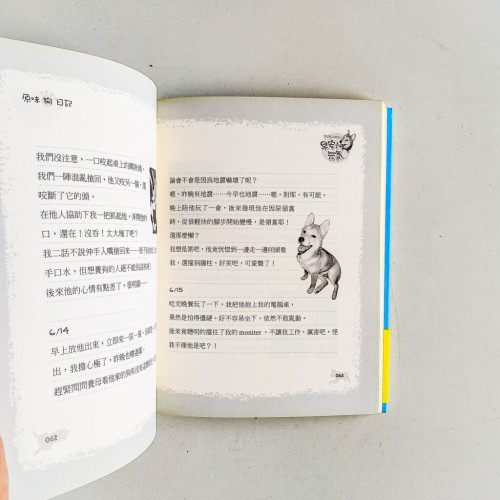 原味 狗 日記
我們沒注意，一口咬起桌上的
我們一陣混亂搶回，他又咬另一個，
咬斷了它的頭。
在他人協助下我一把抓起他，
口，還在！沒吞！太大塊了吧？
我二話不說伸手入嘴搶回來
手口水，但想養狗的人絕不能怕
後來他的心情有點差了，
6/14
早上放他出來，立即來一
出，我擔心極了，昨晚也
趕緊問問養母看他家的狗
062
論會不會是因為地震嚇壞了呢？
嗯，昨晚有地震……今早也有地震……嗯，對耶，有可能。
晚上陪他玩了一會，後來發現他在因尿領賞
時，從很輕快的腳步開始變慢，是領賞耶！
還那麼懶？
我想是睏吧，他竟恍惚到一邊走一邊回頭看
我，還撞到牆柱。好笑吧，可愛斃了！
6/15
吃完晚餐玩了一下，我把他抱上我的電腦桌，
果然是怕得僵硬。好不容易坐下，依然不敢亂動，
後來竟聰明的擋住了我的 moniter，不讓我工作，厲害吧，怪
我不理他是吧？！
063